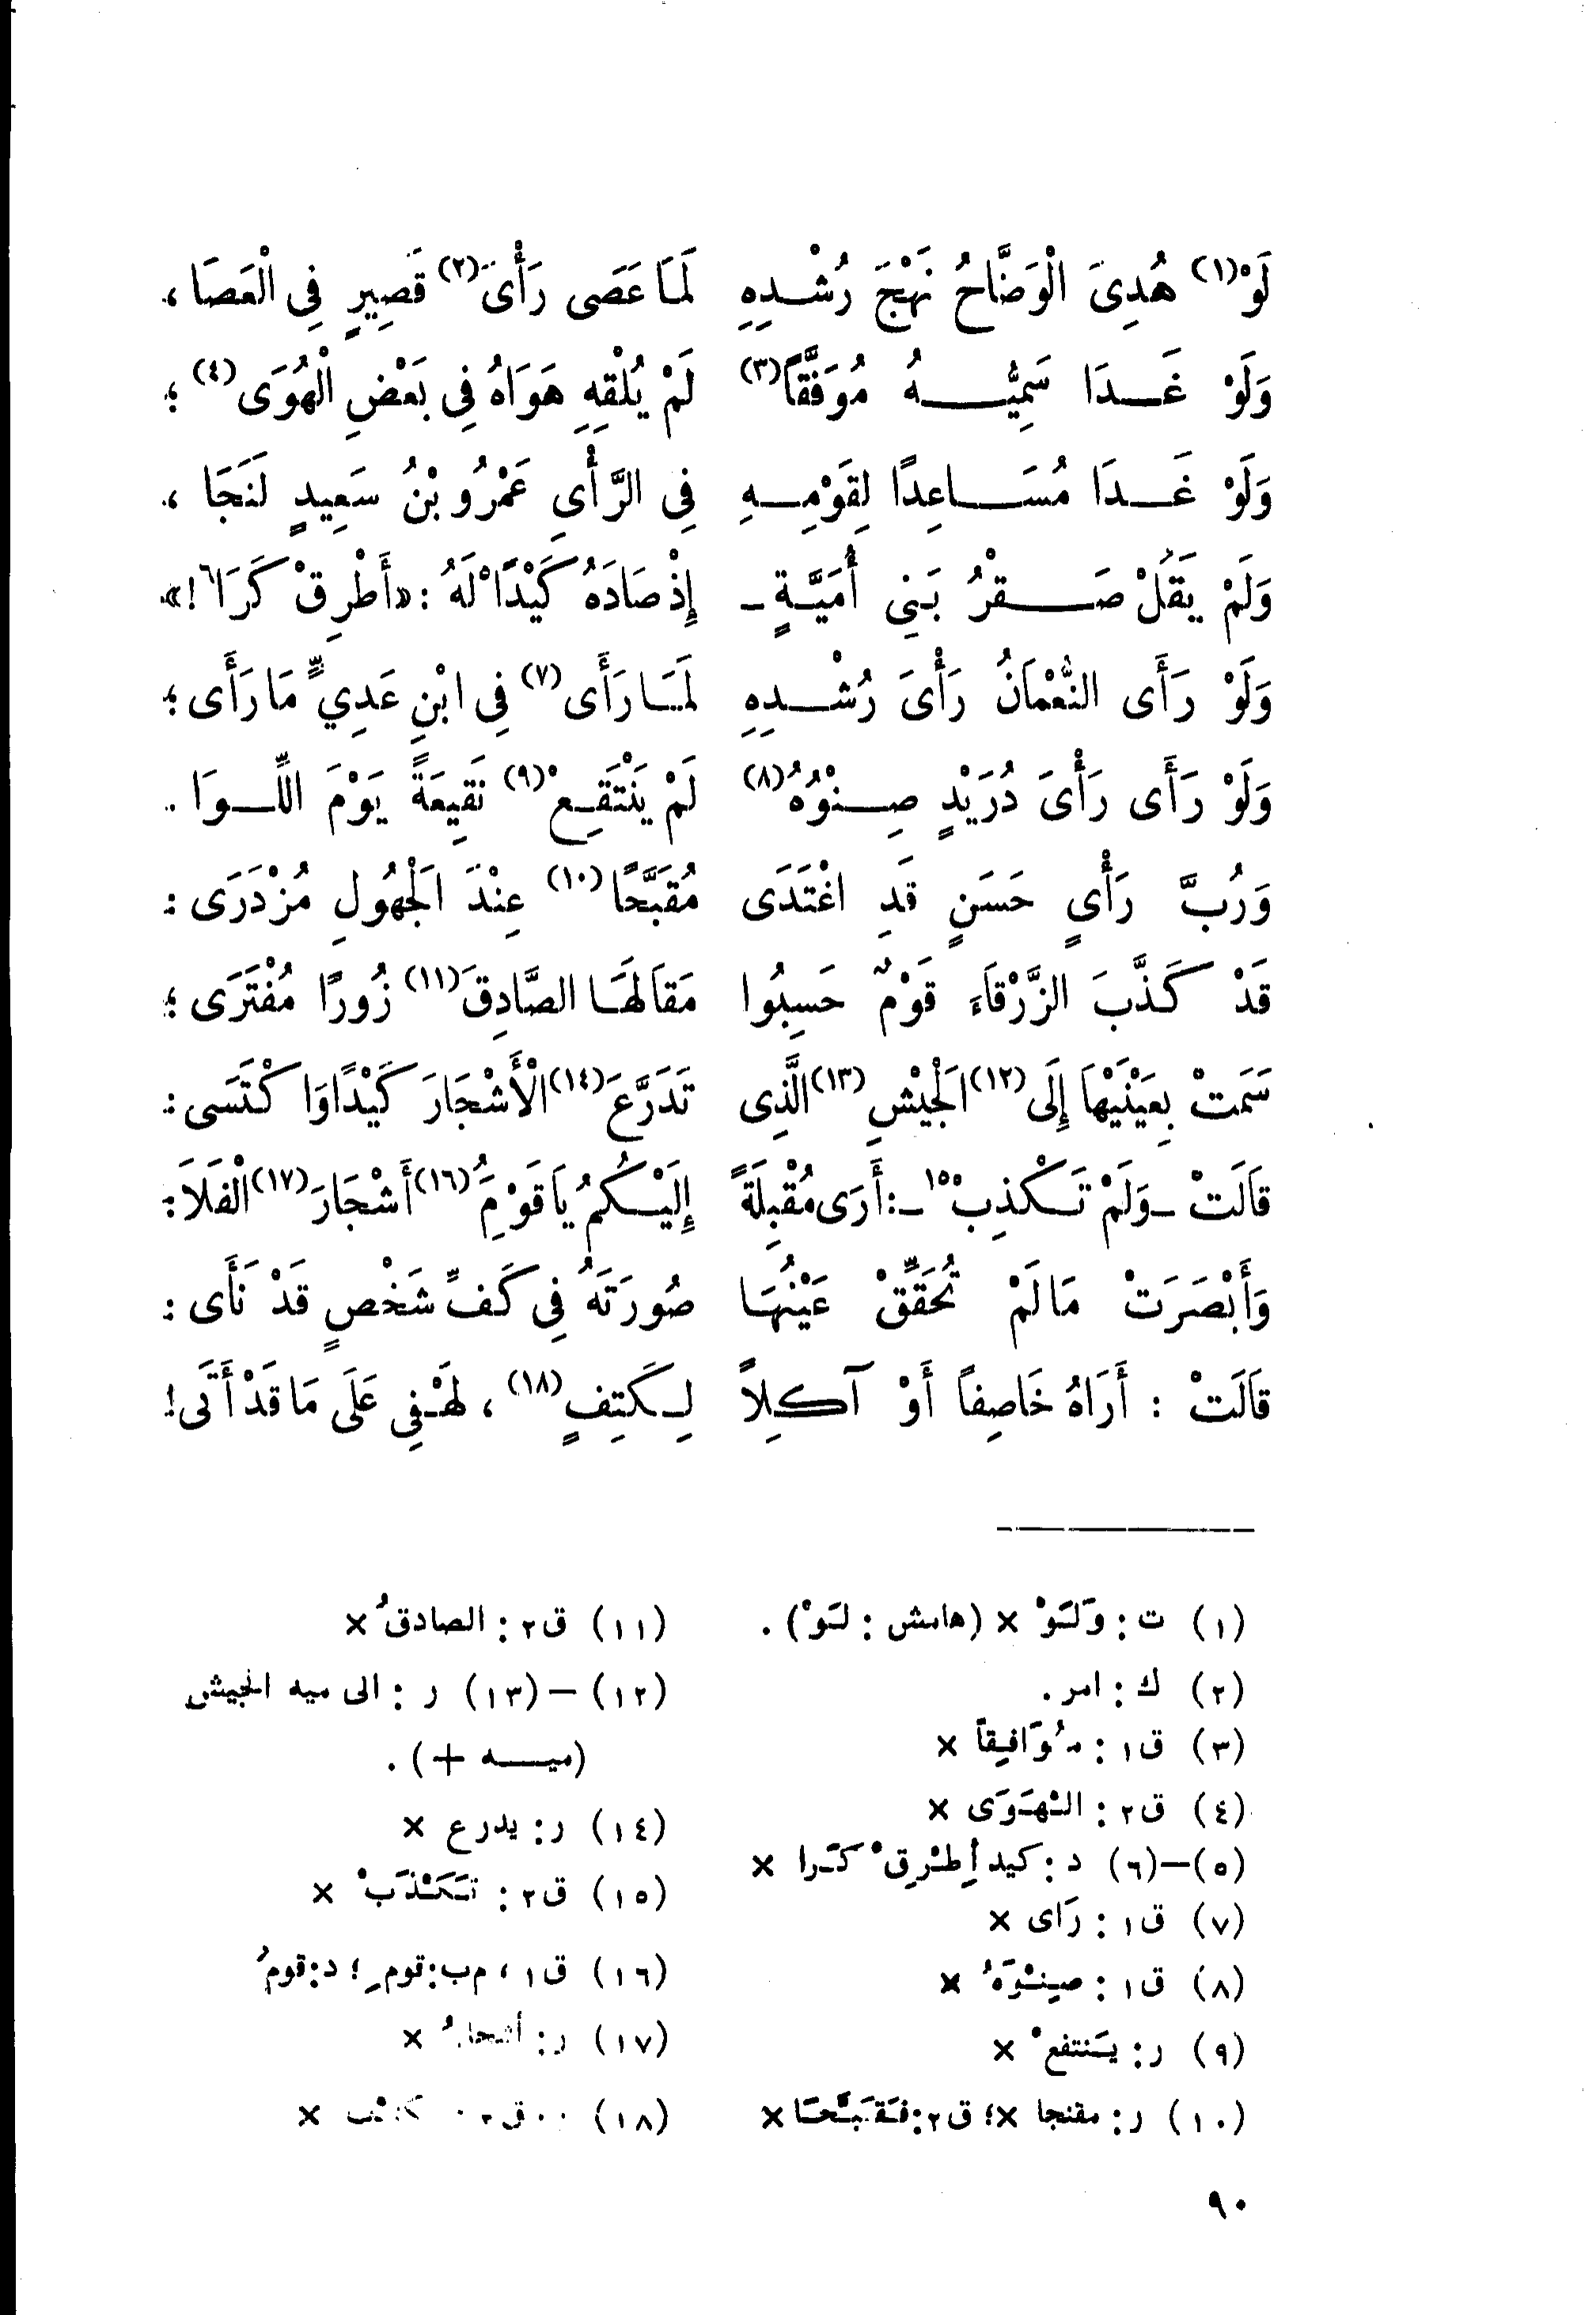 لَوْ(١) هُدِىَ الْوَضَّاحُ نَهْجَ رُشْدِهِ لَمَا عَصَى رَأْىَ(٢) قَصِيرٍ فِى الْعَصَا ،
وَلَوْ غَدَا سَمِيُّهُ مُوَفَّقاً(٣) لَمْ يُلْقِهِ هَوَاهُ فِى بَعْضِ الْهُوَى(٤) ؛
وَلَوْ غَدَا مُسَاعِدًا لِقَوْمِهِ فِى الرَّأْىِ عَمْرُو بْنُ سَعِيدٍ لَنَجَا ،
وَلَمْ يَقُلْ صَقْرُ بَنِى أُمَيَّةٍ - إِذْ صَادَهُ كَيْدًا ْ لَهُ : «أَطْرِقْ كَرَا٦ !»
وَلَوْ رَأَى النُّعْمَانُ رَأْىَ رُشْدِهِ لَمَا رَأَى(٧) فِى ابْنِ عَدِيٍّ مَا رَأَى ؛
وَلَوْ رَأَى رَأْىَ دُرَيْدٍ صِنْوُهُ(٨) لَمْ يَنْتَقِعْ(٩) نَقِيعَةً يَوْمَ اللِّوَا .
وَرُبَّ رَأْيٍ حَسَنٍ قَدِ اغْتَدَى مُقَبَّحًا(١٠) عِنْدَ الْجَهُولِ مُزْدَرَى :
قَدْ كَذَّبَ الزَّرْقَاءَ قَوْمٌ حَسِبُوا مَقَالَهَا الصَّادِقَ(١١) زُورًا مُفْتَرَى ؛
سَمَتْ بِعَيْنَيْهَا إِلَى(١٢) الْجَيْشِ(١٣) الَّذِى تَدَرَّعَ(١٤) الْأَشْجَارَ كَيْدًا وَاكْتَسَى :
قَالَتْ - وَلَمْ تَكْذِبْ١٥ - : أَرَى مُقْبِلَةً إِلَيْكُمُ يَا قَوْمُِ(١٦) أَشْجَارَ(١٧) الْفَلَا :
وَأَبْصَرَتْ مَا لَمْ تُحَقِّقْ عَيْنُهَا صُورَتَهُ فِى كَفِّ شَخْصٍ قَدْ نَأَى :
قَالَتْ : أَرَاهُ خَاصِفاً أَوْ آكِلاً لِكَتِفٍ(١٨) ، لَهْفِى عَلَى مَا قَدْ أَتَى !
(١) ت : وَلَوْ × (هامش : لَوْ) .
(٢) ك : امر .
(٣) ق١ : مُوَافِقاً ×
(٤) ق٢ : الْهَوَى ×
(٥)–(٦) د : كيد أِطْرِقْ كَرا ×
(٧) ق١ : رَاى ×
(٨) ق١ : صِنْوَهُ ×
(٩) ر : يَنتفعْ ×
(١٠) ر : مقنجا × ؛ ق٢ : فَقَبَّحَا ×
(١١) ق٢ : الصادقُ ×
(١٢) – (١٣) ر : الى ميه الجيش
(ميه +) .
(١٤) ر : يدرع ×
(١٥) ق٢ : تَكَذَبْ ×
(١٦) ق١ ، م ب : قومِ ؛ د : قومُ
(١٧) ر : أشجارُ ×
(١٨) ق٢ ×
٩٠